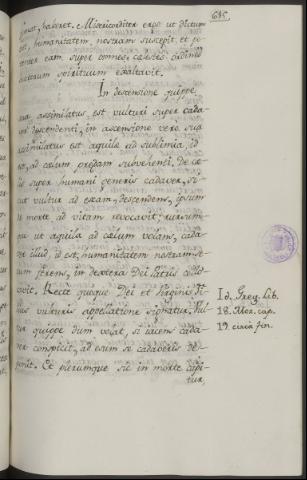 685
ut dictum
est, humanitatem nostram suscepit, et
eam super omnes cælestes ordines
spirituum exaltavit.
In descensione quippe
sua assimilatus est vulturi super cada-
descendenti, in ascensione vero sua
assimilatus est aquilæ ad sublimia, id
est, ad cælum prædam subvehenti. De cæ-
lis super humani generis cadaver, si-
cut vultur ad exam, descendens, ipsum
de morte ad vitam revocavit; rursum-
que ut aquila ad cælum volans, cada-
ver illud, id est, humanitatem nostram se-
cum ferens, in dextera Dei Patris collo-
cavit. Recte quoque Dei et Virginis Fi-
lius vulturis appellatione signatur. Vul-
tur quippe dum volat, si iacens cada-
ver conspicit, ad esum se cadaveris de-
ponit. Et plerumque sic in morte capi-
tur,
Id. Greg. Lib.
18. Mor. cap.
19 circa fin.